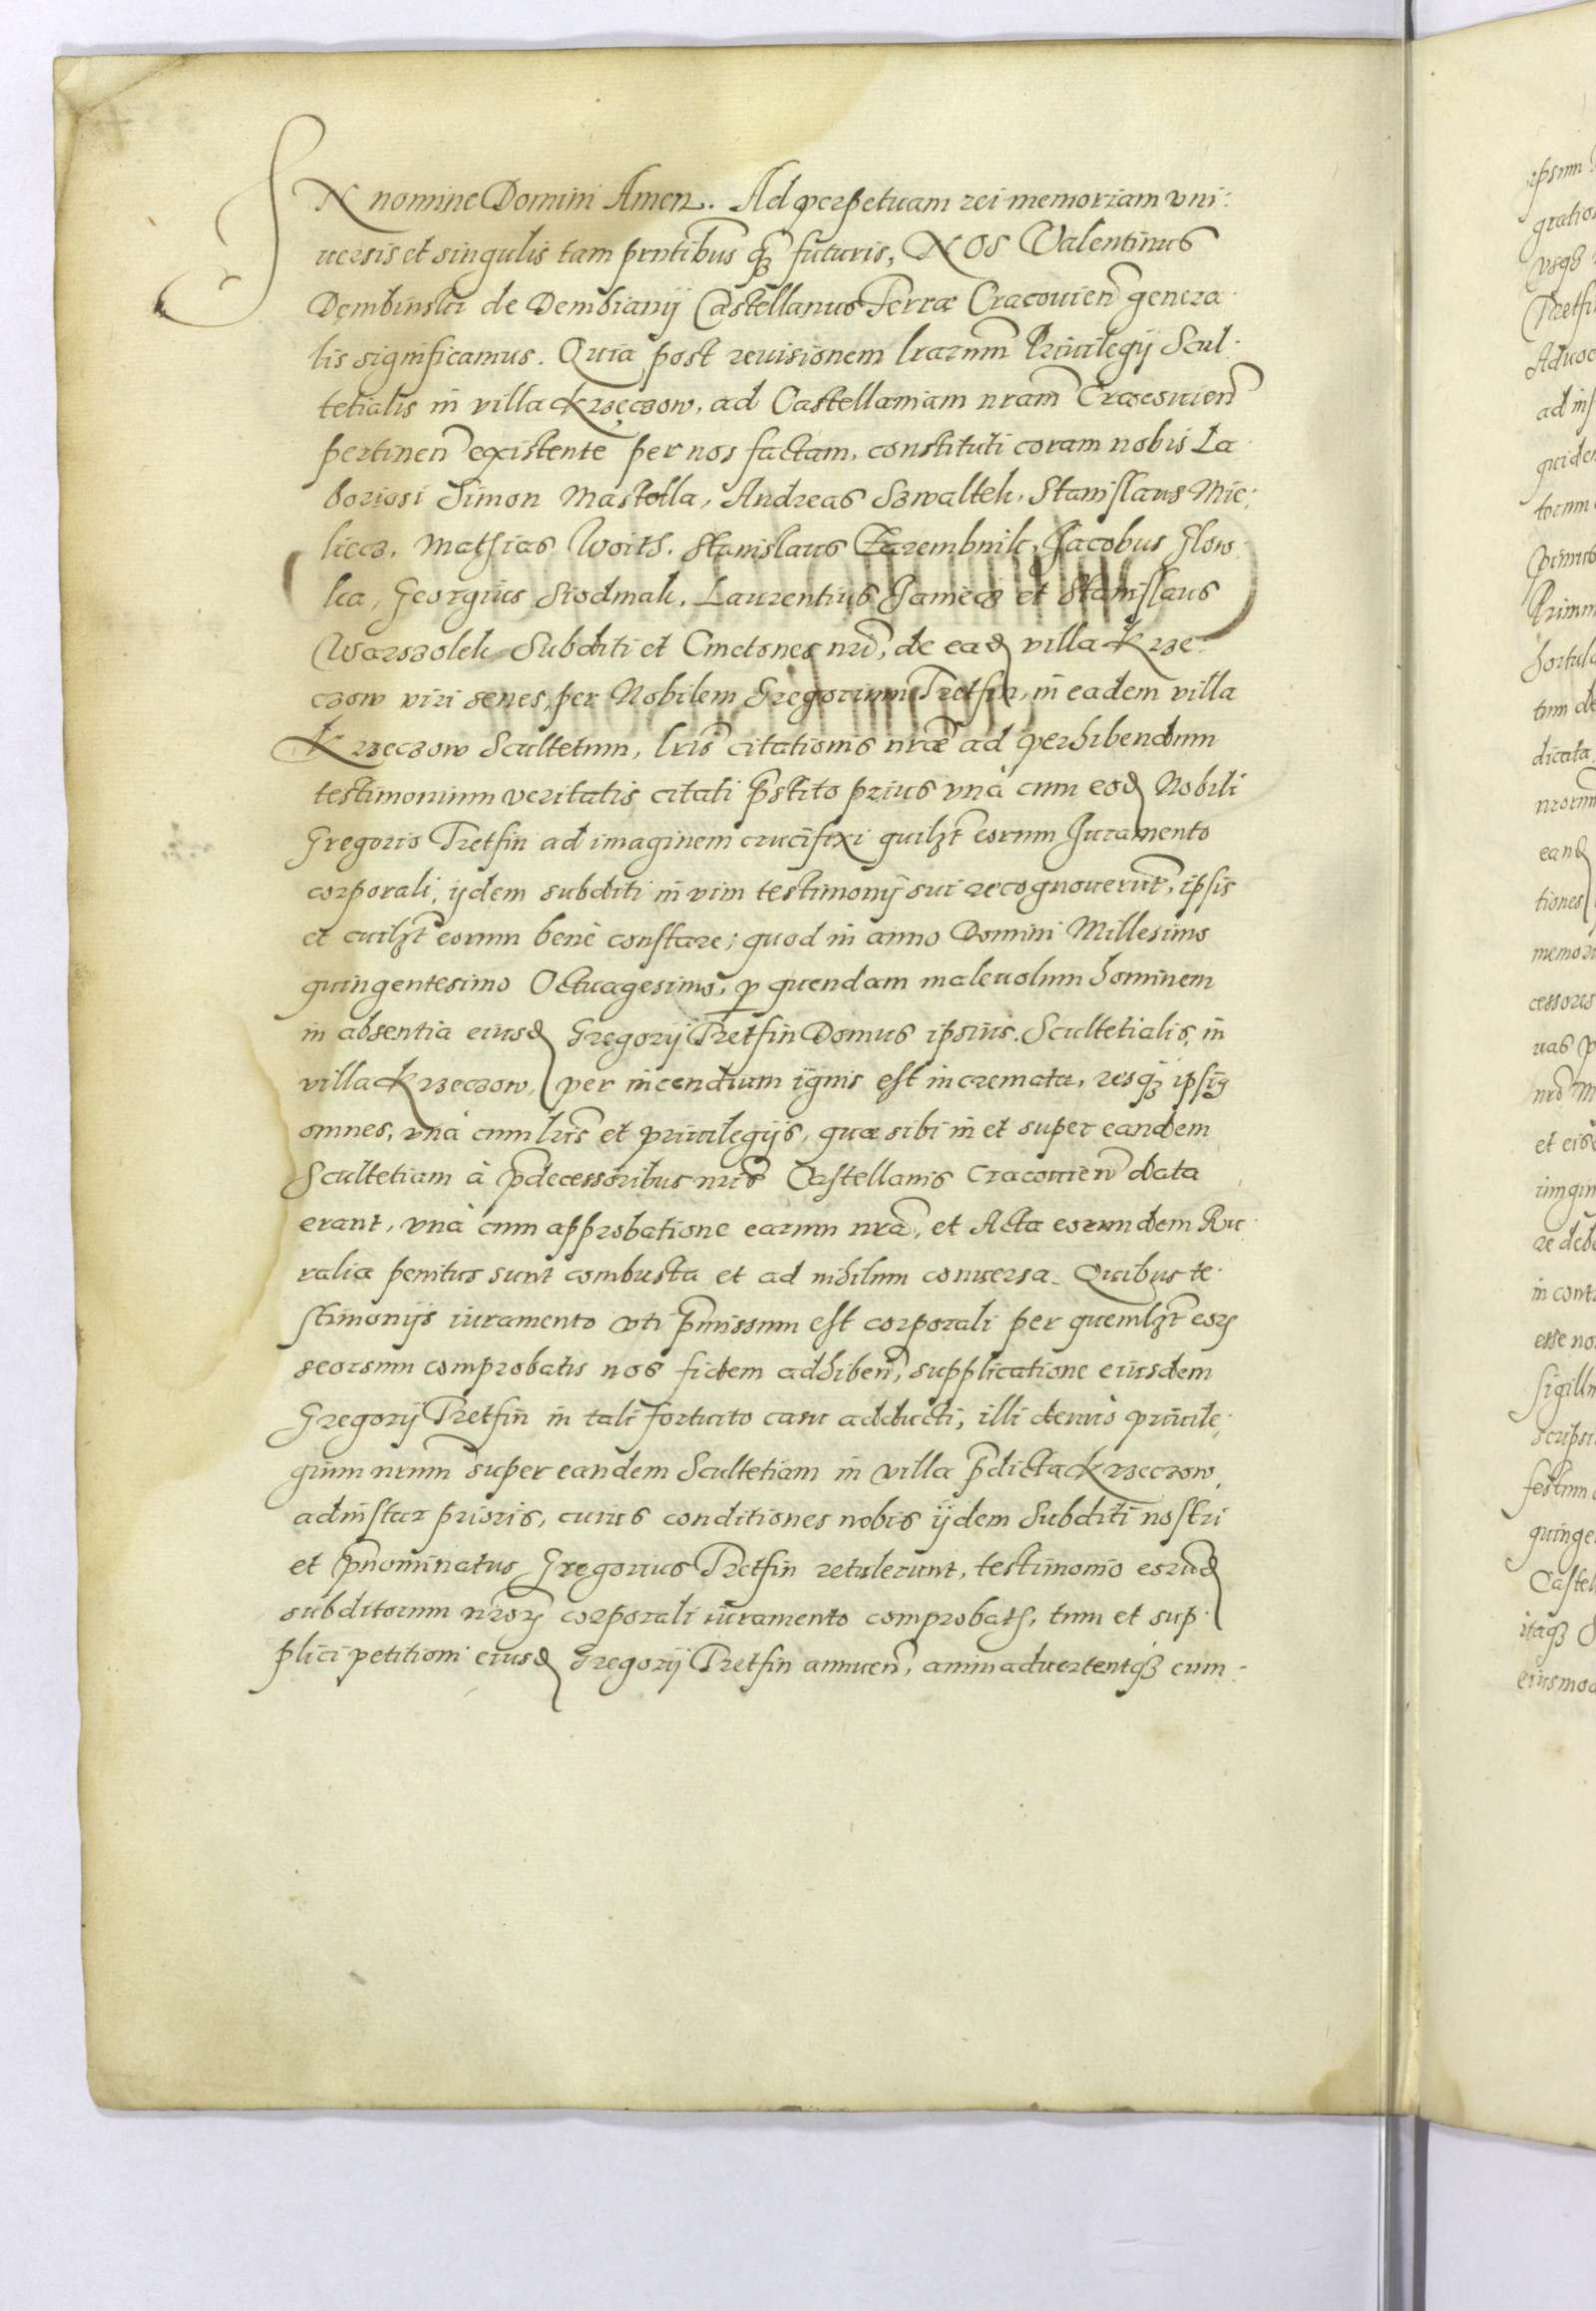 IN nomine Domini Amen. Ad perpetuam rei memoriam vni:
uersis et singulis tam pr̃ntibus q̃ȝ futuris, NOS Valentinus
Dembinski de Dembiany Castellanus Terræ Cracouieñ genera
lis significamus. Quia post reuisionem lrarum̃ Priuilegij Scul:
tetialis in villa Krzęczow, ad Castellaniam nram̃ Cracouieñ
pertineñ existente per nos factam, constituti coram nobis La
boriosi Simon Mastella, Andreas Szwaltek, Stanislaus Mic:
liecz, Mathias Woith, Stanislaus Zarembnik, Jacobus Glow
ka, Georgius Siodmak, Laurentius Janiecz et Stanislaus
Warszolek Subditi et Cmetones nr̃i, de ead villa Krze
czow viri senes, per Nobilem Gregorium Tretfin, in eadem villa
Krzeczow Scultetum, lris̃ citationis nræ̃ ad perhibendum
testimonium veritatis citati p̃stito prius vnà cum eod Nobili
Gregorio Tretfin ad imaginem crucifixi quilȝt eorum Juramento
corporali, ijdem subditi in vim testimonij sui recognouerũt, ipsis
et cuilȝt eorum benè constare; quod in anno Domini Millesimo
quingentesimo Octuagesimo, p quendam maleuolum hominem
in absentia eiusd Gregorij Tretfin Domus ipsius Scultetialis, in
villa Krzeczow, per incendium ignis est incremata, resq̃ȝ ipsiꝰ
omnes, vnà cum lris̃ et priuilegijs, quæ sibi in et super eandem
Scultetiam à p̃decessoribus nris̃ Castellanis Cracouieñ data
erant, vnà cum approbatione earum nrã, et Acta eorundem Ru
ralia penitus sunt combusta et ad nihilum conuersa. Quibus te
stimonijs iuramento vti p̃missum est corporali per quemlȝt eoꝝ
seorsum comprobatis nos fidem adhibeñ, supplicatione eiusdem
Gregorij Tretfin in tali fortuito casu adducti, illi denuò priuile
gium nrum̃ super eandem Scultetiam in villa p̃dicta Krzeczow,
ad instar prioris, cuius conditiones nobis ijdem Subditi nostri
et p̃nominatus Gregorius Tretfin retulerunt, testimonio eorũd
subditorum nr̃oꝝ corporali iuramento comprobatis, tum et sup
plici petitioni eiusd Gregorij Tretfin annueñ, animaduertentq̃ȝ cum